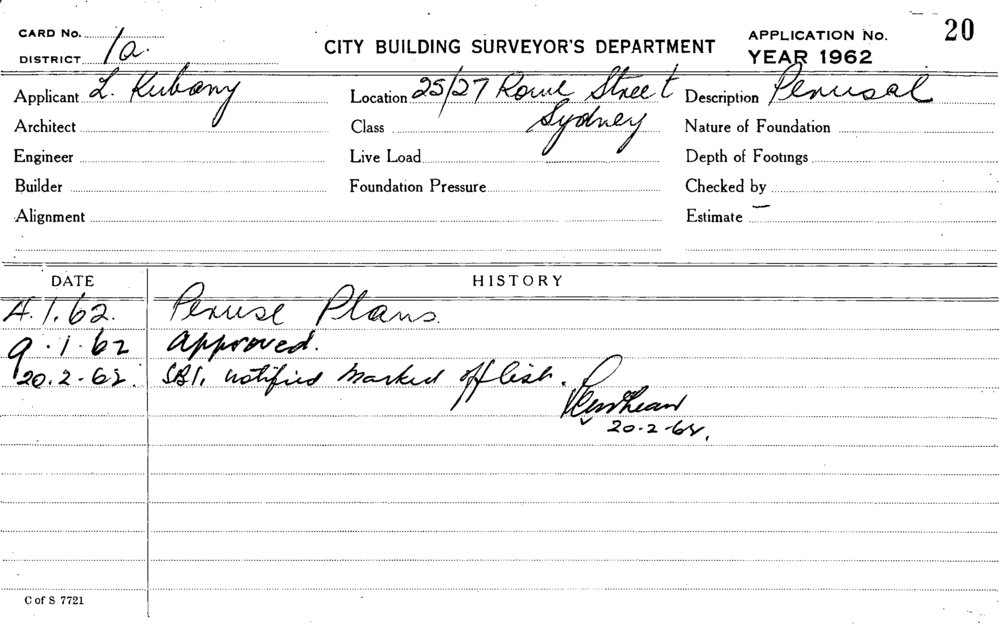 CARD No.
DISTRICT 1a.
CITY BUILDING SURVEYOR'S DEPARTMENT
APPLICATION No. 20
YEAR 1962
Applicant L. Kubany Location 25/27 Rowe Street Description Perusal
Sydney
Architect Class Nature of Foundation
Engineer Live Load Depth of Footings
Builder Foundation Pressure Checked by
Alignment Estimate
DATE HISTORY
4.1.62. Peruse Plans.
9.1.62 approved.
20.2.62. SBI. notified marked off list.
20-2-62.
C of S 7721